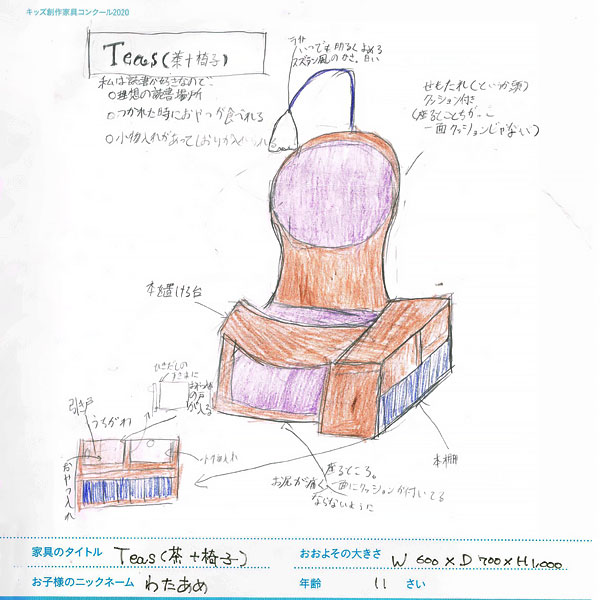 キッズ創作家具コンクール2020
Teas(茶+椅子)
私は読書が好きなので…
○理想の読書場所
○つかれた時におやつが食べれる
○小物入れがあってしおりが
ライト
いつでも明るくよめる
ステンドグラス風のかさ。白い
せもたれ(というか頭)
クッション付き
(座るとこちがって
一面クッションじゃない)
本を置ける台
ひきだしの
すきまに
の戸
が入る
引き戸
うちがわ
おやつ入れ
小物入れ
本棚
座るところ。
お尻が痛く
一面にクッションが付いてる
ならないように
家具のタイトル Teas(茶+椅子)
おおよその大きさ W 600×D 700×H1,000
お子様のニックネーム わたあめ
年齢 11 さい